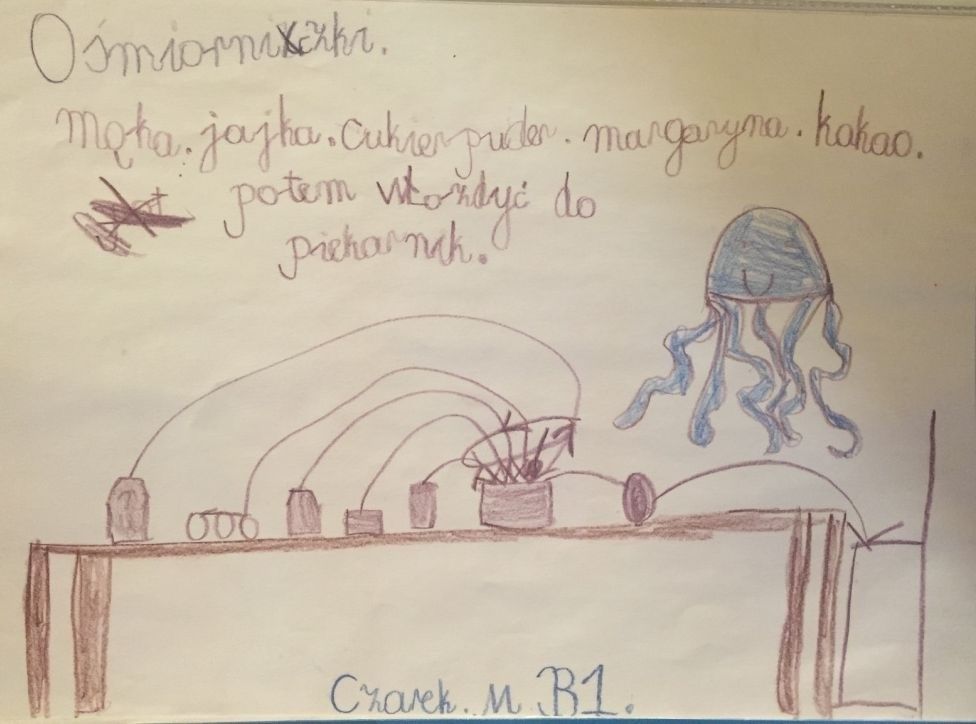 Ośmiorniczki.
Mąka. jajka. Cukier puder. margaryna. kakao.
potem włordyć do
piekarnik.
Czarek. M. B1.